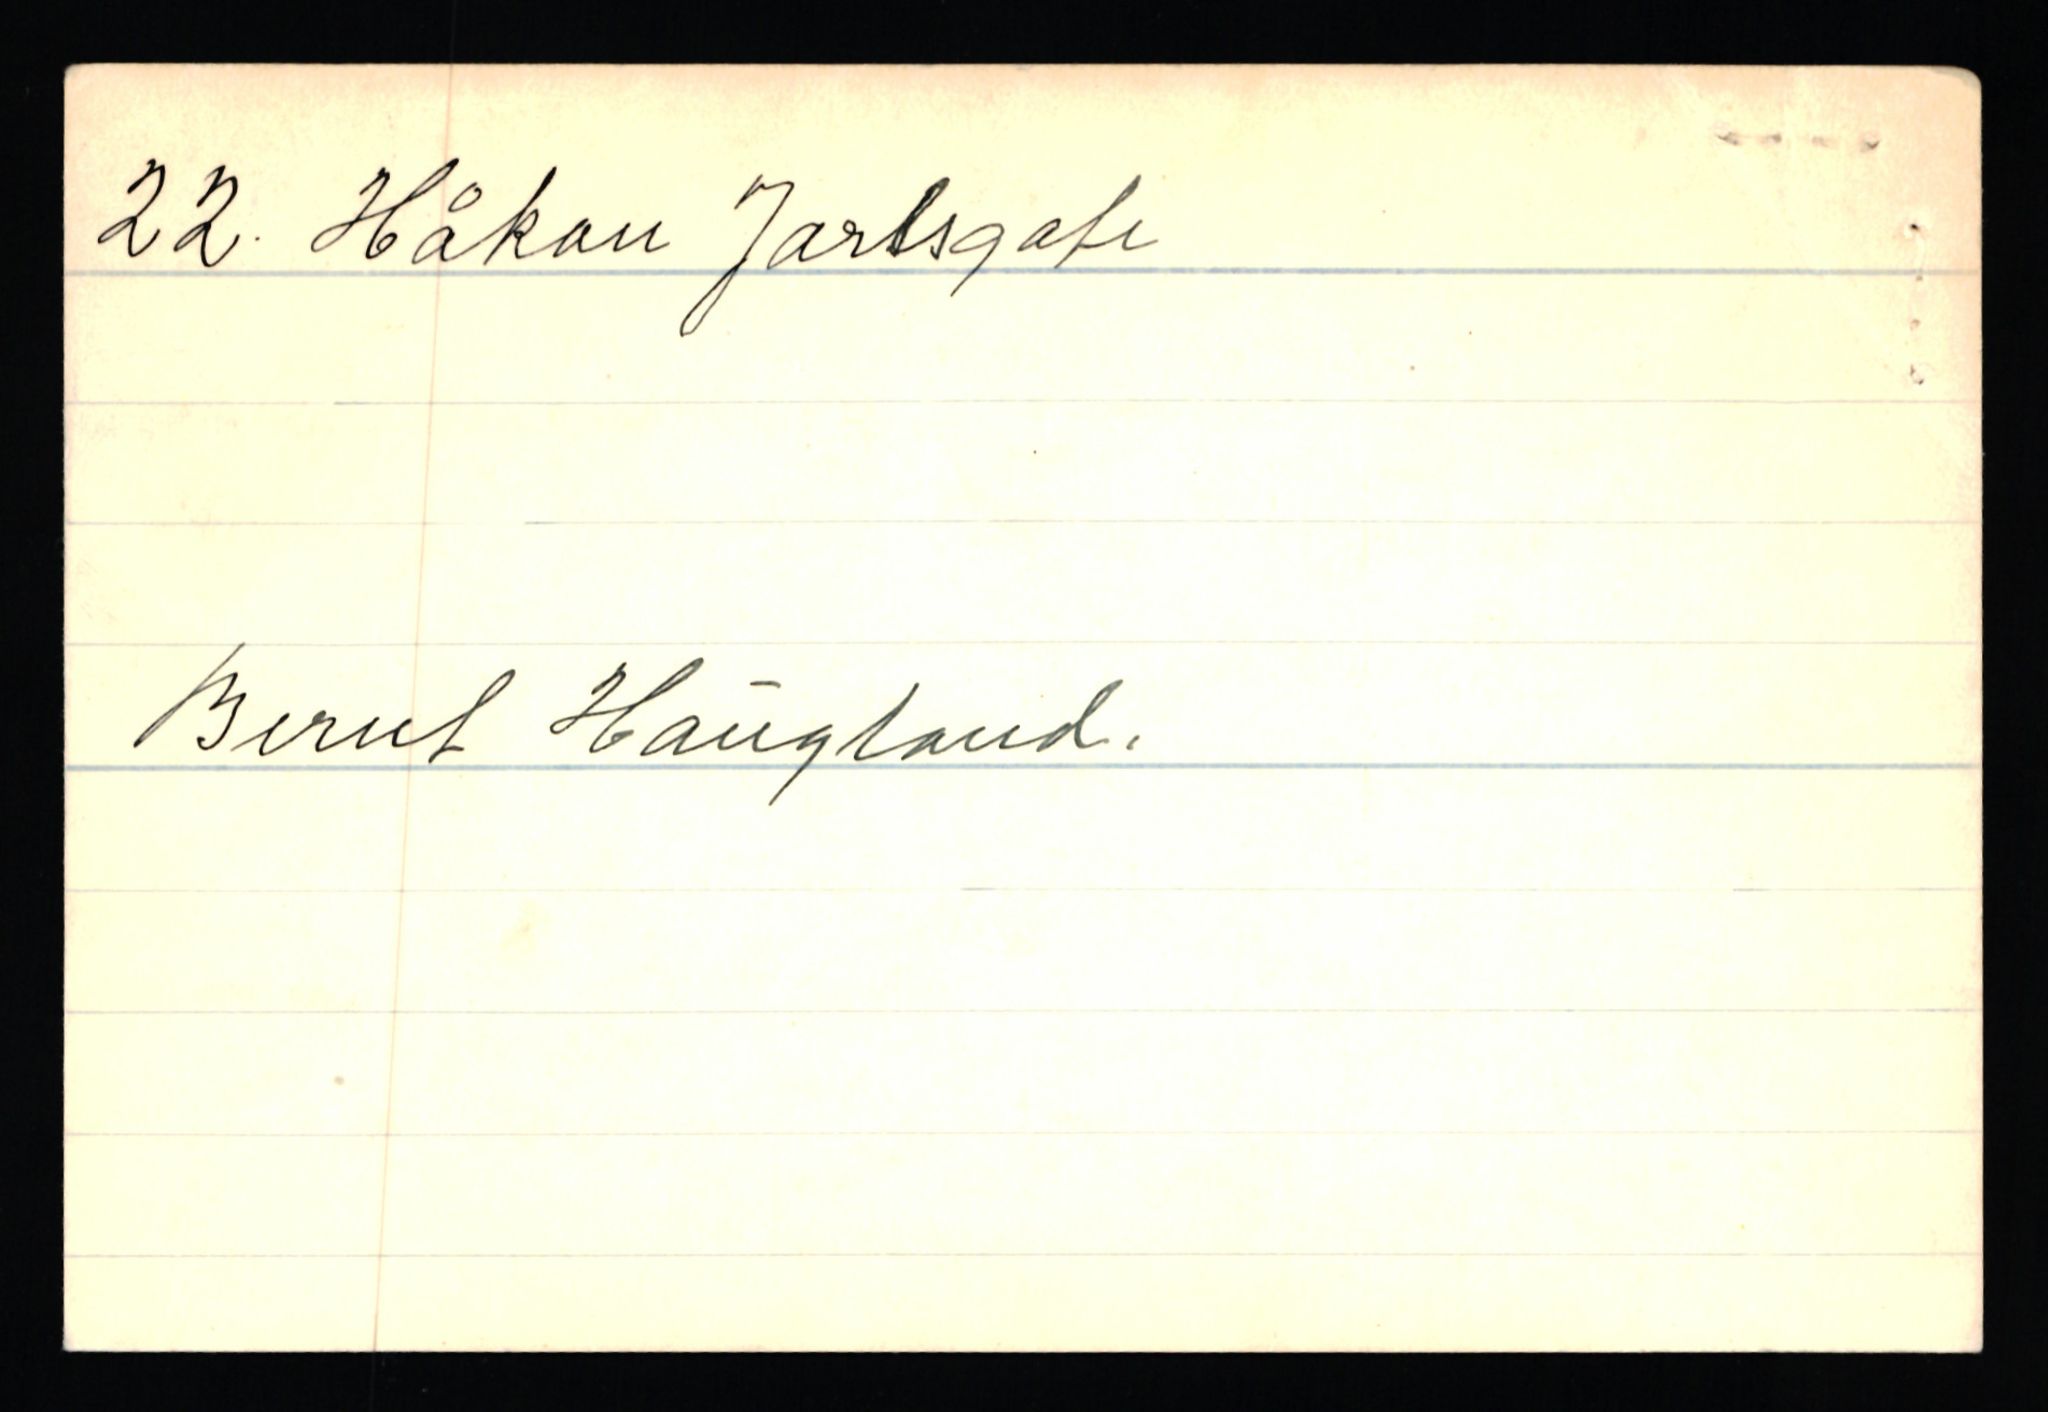 22. Håkon Jarlsgate
Bernt Haugland.